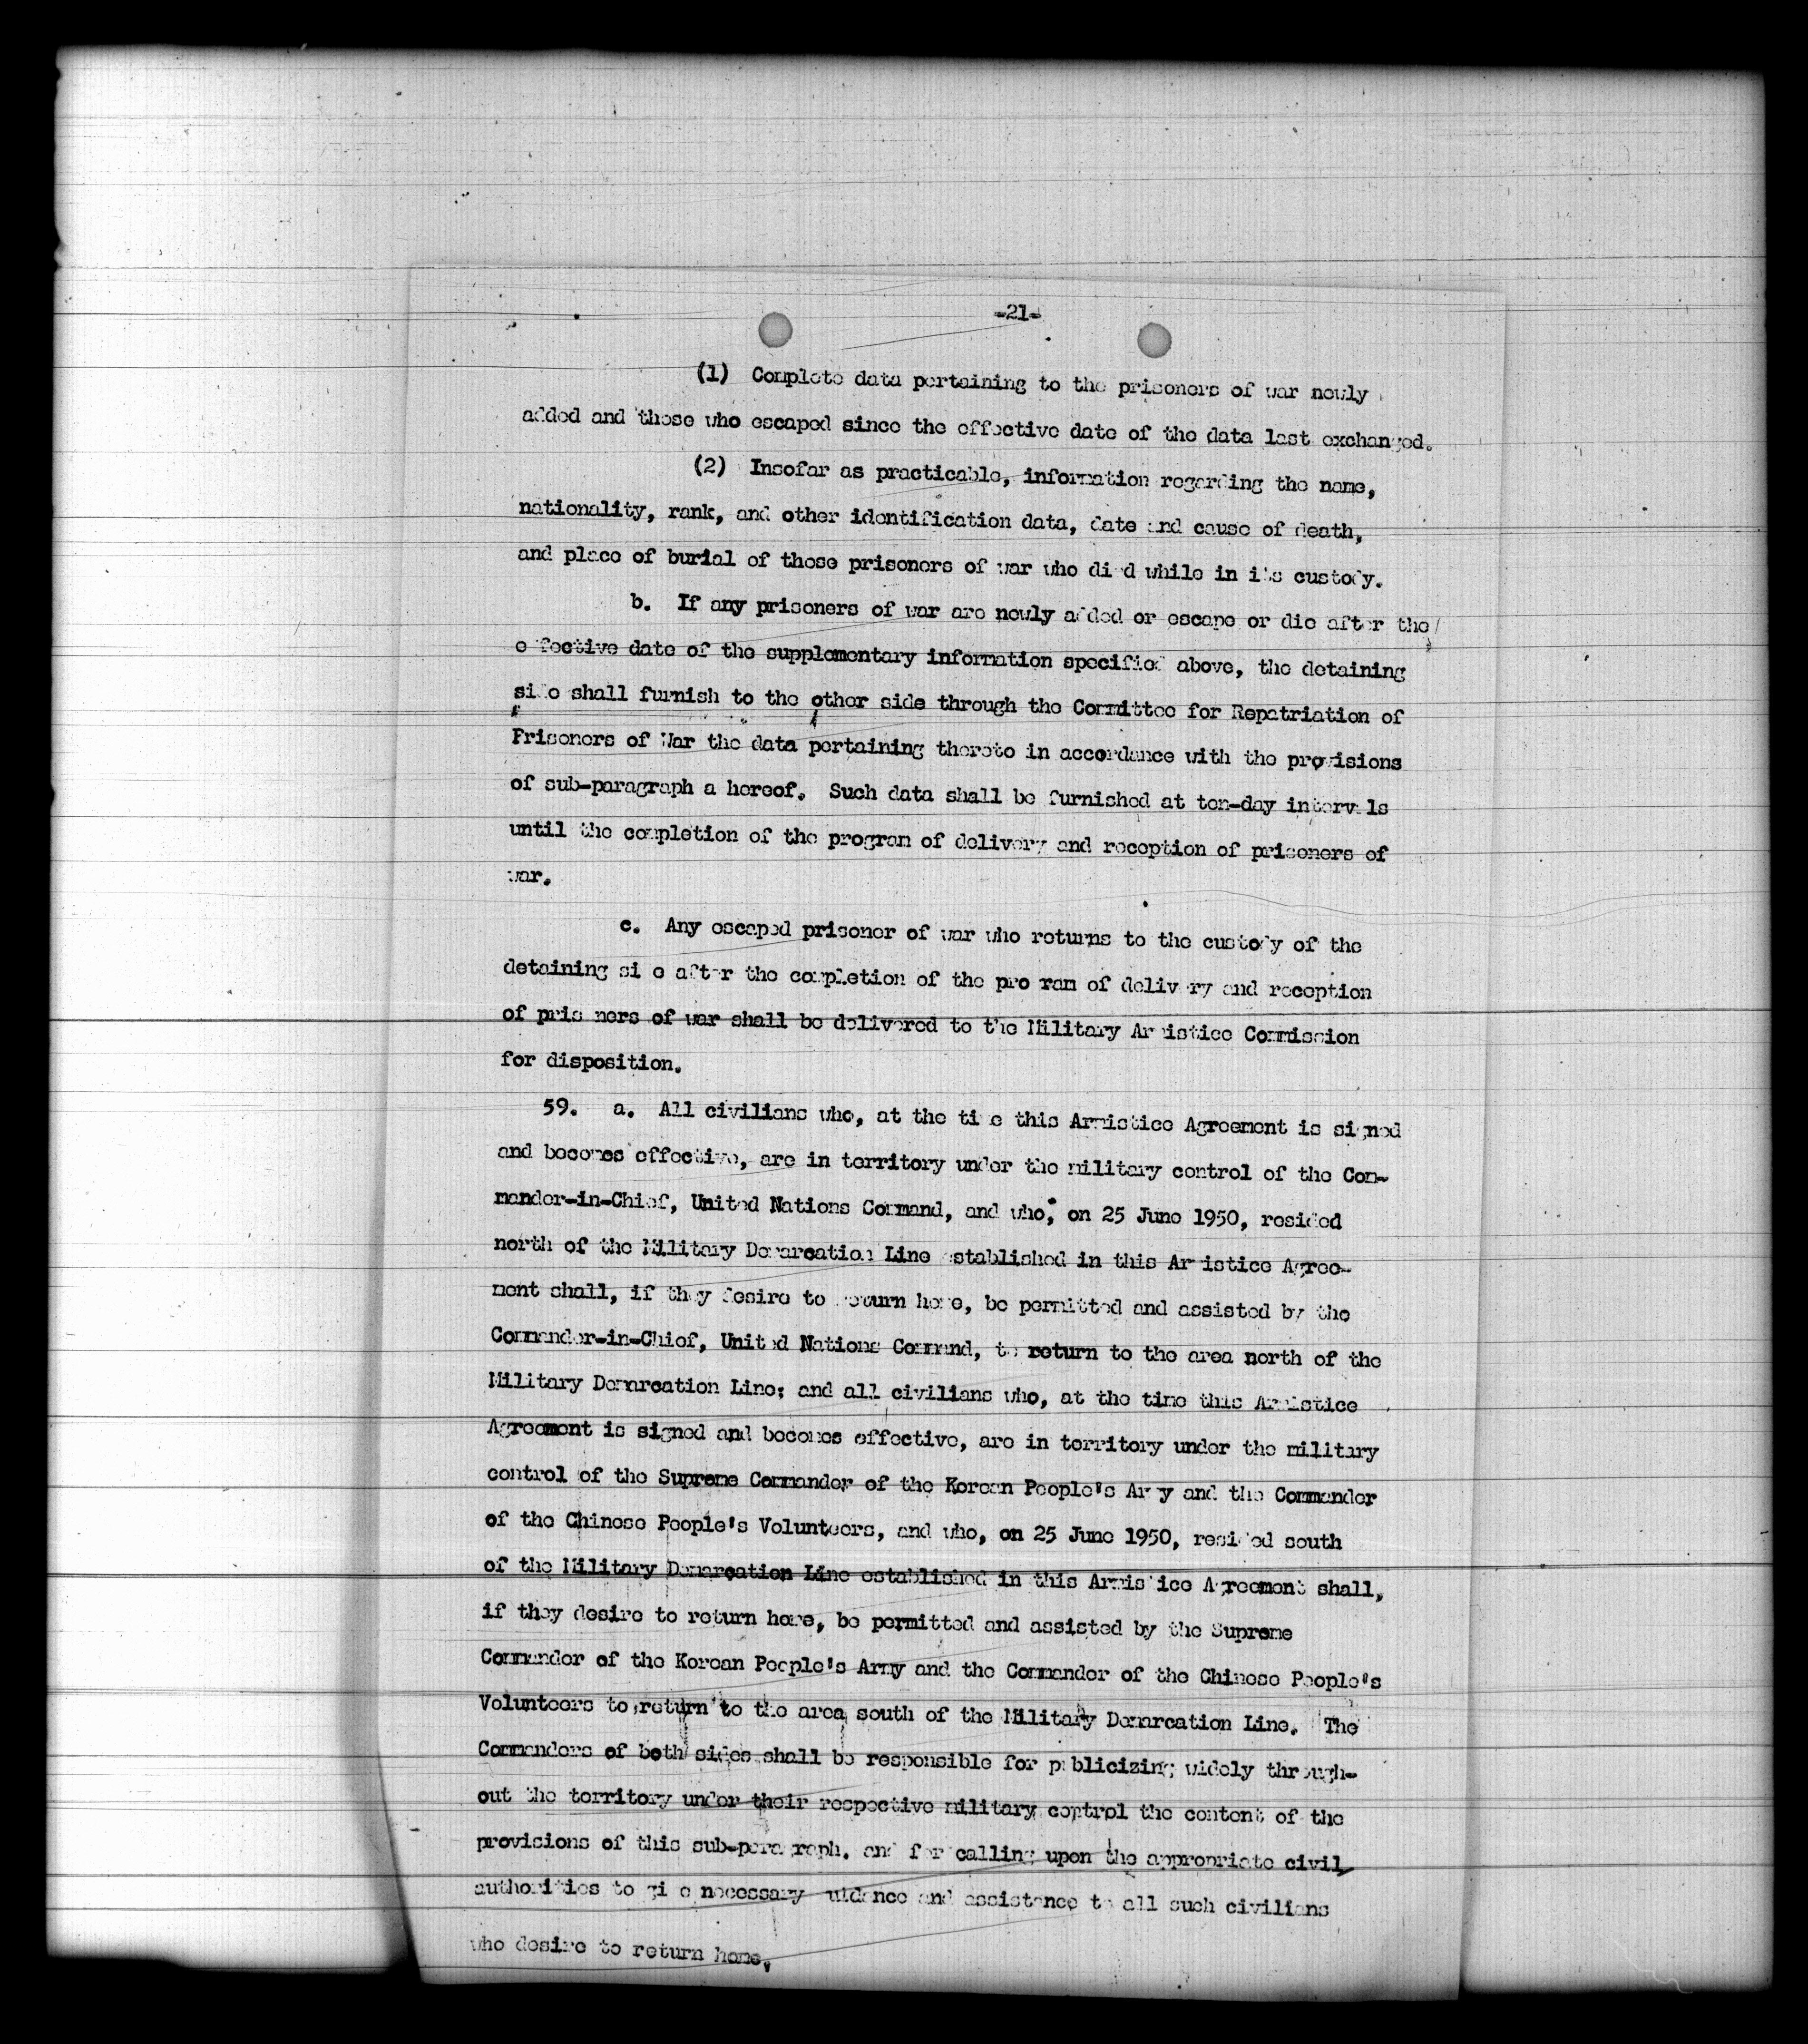 -21-
(1) Complete data pertaining to the prisoners of war newly
added and those who escaped since the effective date of the data last exchanged.
(2) Insofar as practicable, information regarding the name,
nationality, rank, and other identification data, date and cause of death,
and place of burial of those prisoners of war who died while in its custody.
b. If any prisoners of war are newly added or escape or die after the
effective date of the supplementary information specified above, the detaining
side shall furnish to the other side through the Committee for Repatriation of
Prisoners of War the data pertaining thereto in accordance with the provisions
of sub-paragraph a hereof. Such data shall be furnished at ten-day intervals
until the completion of the program of delivery and reception of prisoners of
war.
c. Any escaped prisoner of war who returns to the custody of the
detaining side after the completion of the program of delivery and reception
of prisoners of war shall be delivered to the Military Armistice Commission
for disposition.
59. a. All civilians who, at the time this Armistice Agreement is signed
and becomes effective, are in territory under the military control of the Com-
mander-in-Chief, United Nations Command, and who, on 25 June 1950, resided
north of the Military Demarcation Line established in this Armistice Agree-
ment shall, if they desire to return home, be permitted and assisted by the
Commander-in-Chief, United Nations Command, to return to the area north of the
Military Demarcation Line; and all civilians who, at the time this Armistice
Agreement is signed and becomes effective, are in territory under the military
control of the Supreme Commander of the Korean People's Army and the Commander
of the Chinese People's Volunteers, and who, on 25 June 1950, resided south
of the Military Demarcation Line established in this Armistice Agreement shall,
if they desire to return home, be permitted and assisted by the Supreme
Commander of the Korean People's Army and the Commander of the Chinese People's
Volunteers to return to the area south of the Military Demarcation Line. The
Commanders of both sides shall be responsible for publicizing widely through-
out the territory under their respective military control the content of the
provisions of this sub-paragraph, and for calling upon the appropriate civil
authorities to give necessary guidance and assistance to all such civilians
who desire to return home.